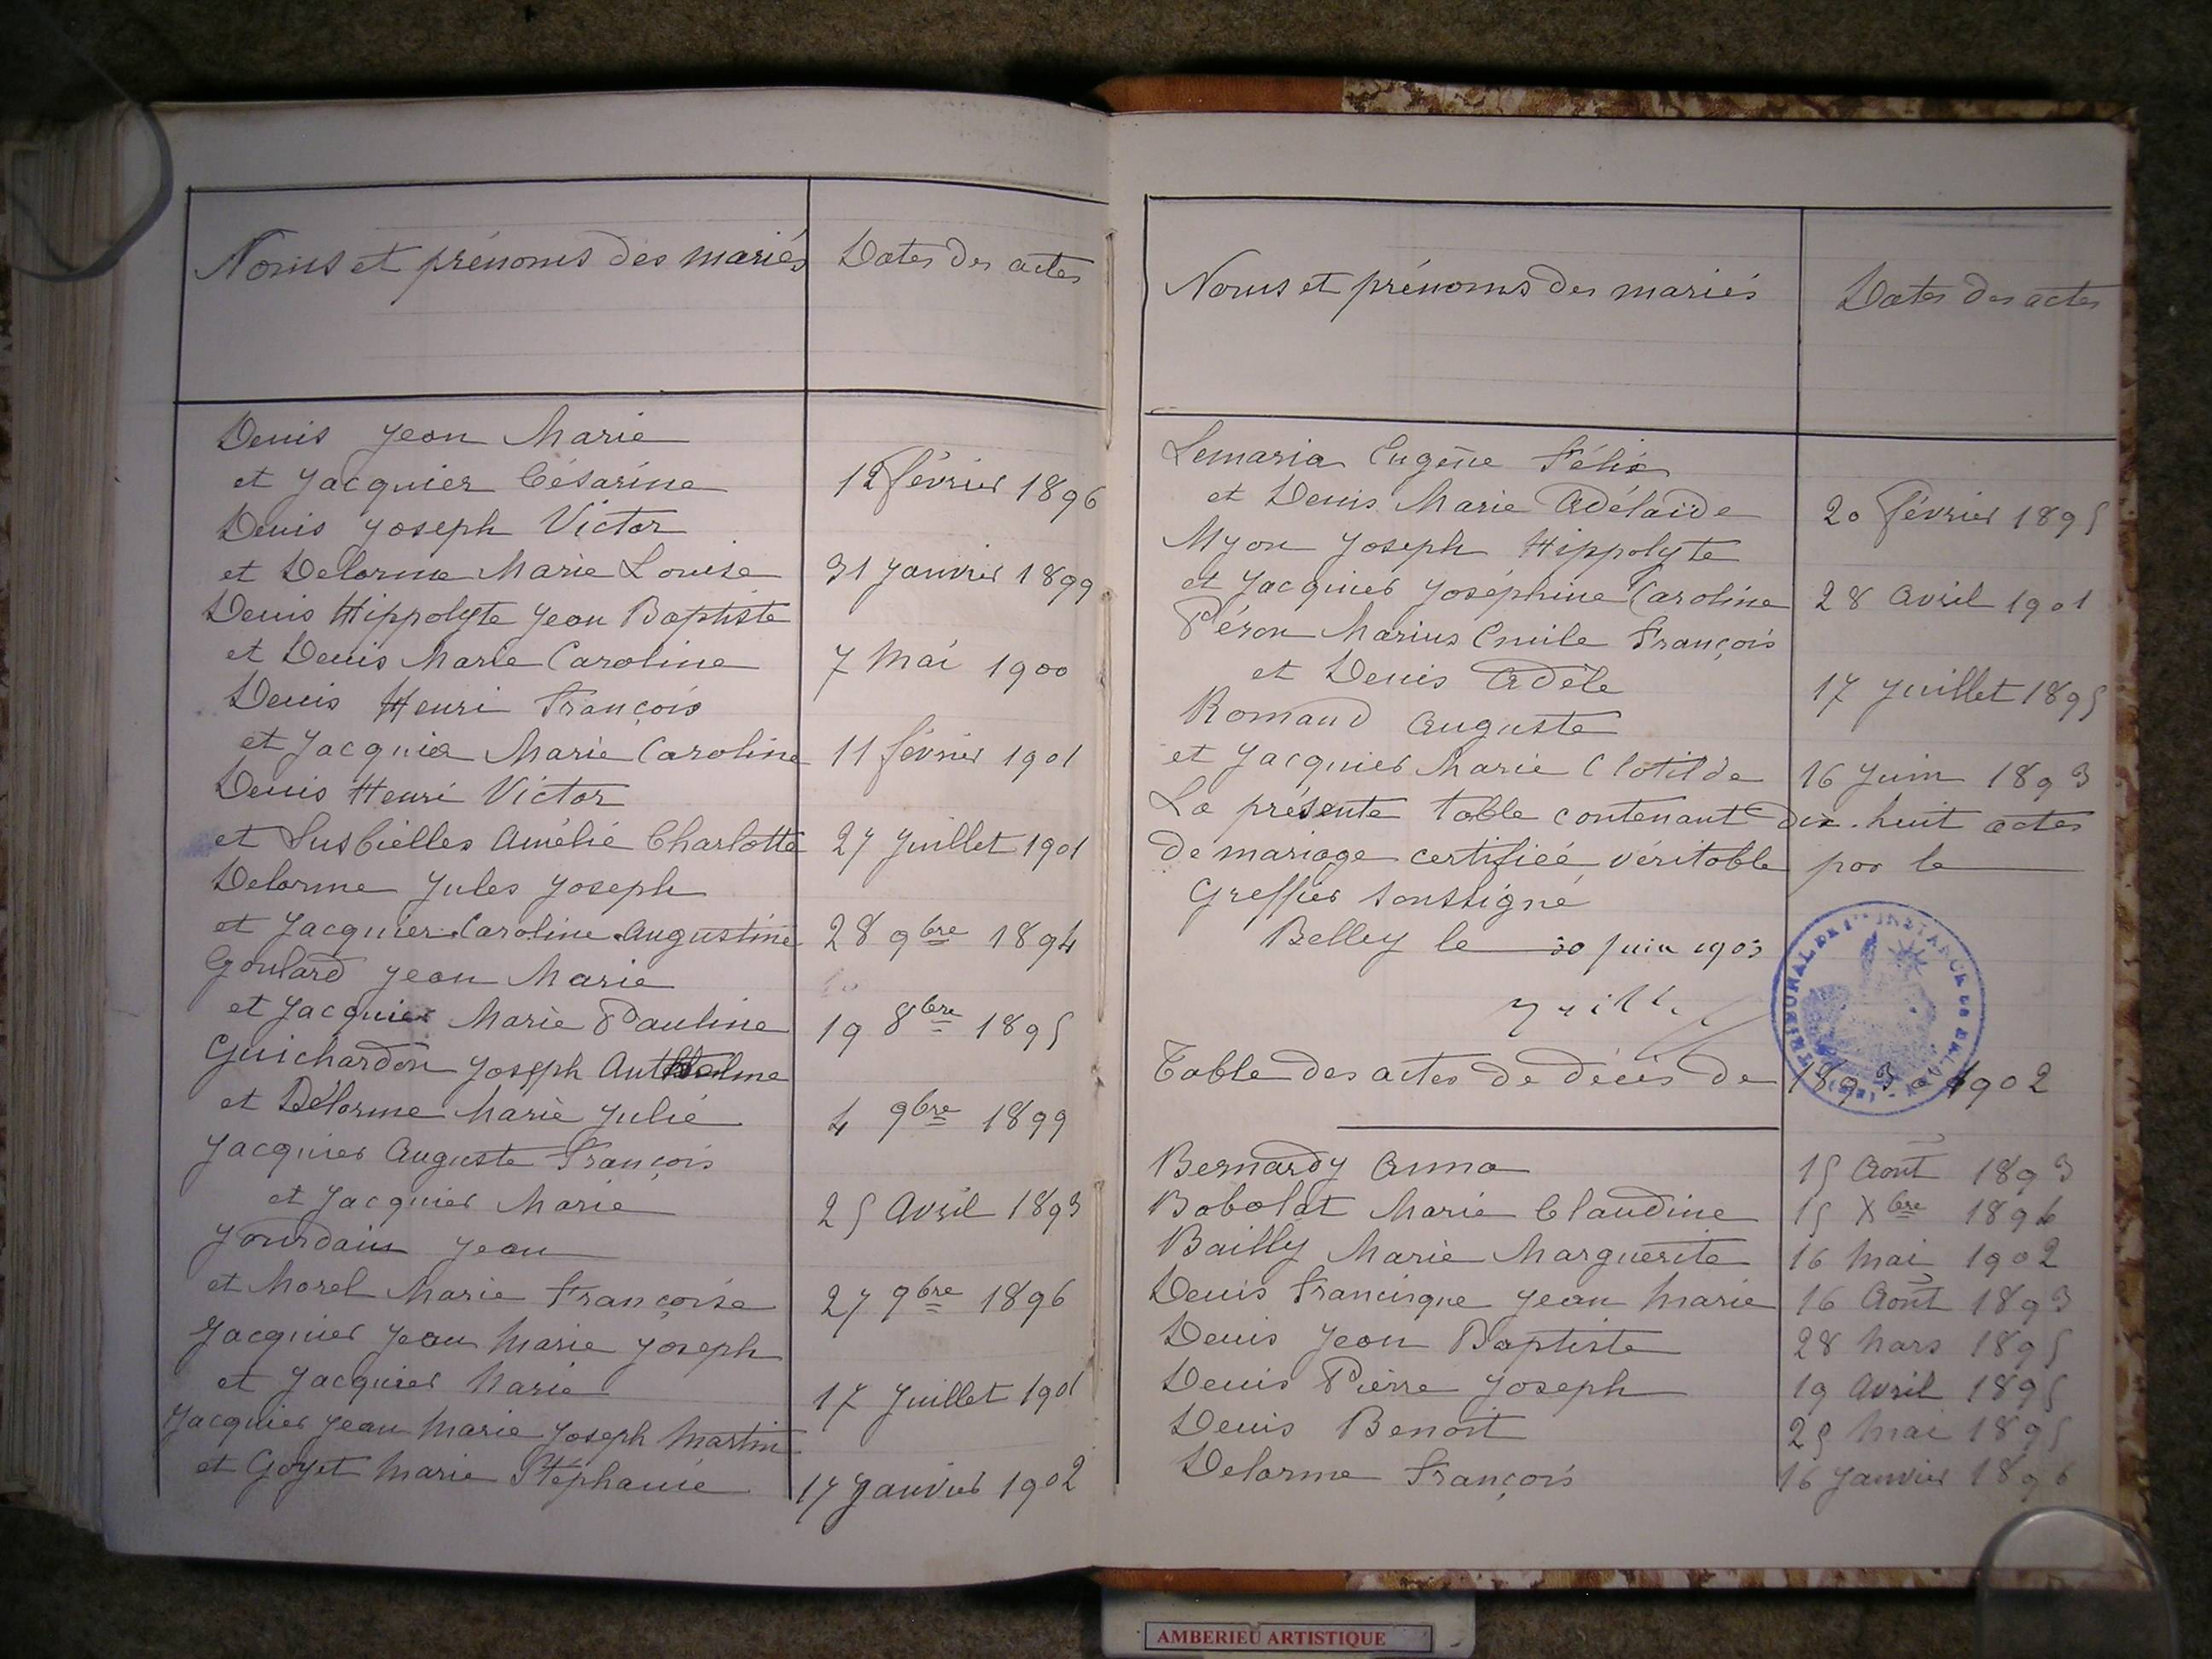 Noms et prénoms des mariés Dates des actes
Denis Jean Marie
et Jacquier Césarine 12 février 1896
Denis Joseph Victor
et Delorme Marie Louise 31 Janvier 1899
Denis Hippolyte Jean Baptiste
et Denis Marie Caroline 7 Mai 1900
Denis Henri François
et Jacquier Marie Caroline 11 février 1901
Denis Henri Victor
et Susbielles Amélie Charlotte 27 Juillet 1901
Delorme Jules Joseph
et Jacquier Caroline Augustine 28 9bre 1894
Goulard Jean Marie
et Jacquier Marie Pauline 19 8bre 1895
Guichardon Joseph Anthelme
et Délorme Marie Julie 4 9bre 1899
Jacquier Auguste François
et Jacquier Marie 25 Avril 1893
Jourdain Jean
et Morel Marie Françoise 27 9bre 1896
Jacquier Jean Marie Joseph
et Jacquier Marie 17 Juillet 1901
Jacquier Jean Marie Joseph Martin
et Goyet Marie Stéphanie 17 Janvier 1902
Noms et prénoms des mariés Dates des actes
Lemaria Eugène Félix
et Denis Marie Adélaïde 20 février 1895
Myon Joseph Hippolyte
et Jacquier Joséphine Caroline 28 Avril 1901
Péron Marius Emile François
et Denis Adèle 17 Juillet 1895
Romand Auguste
et Jacquier Marie Clotilde 16 Juin 1893
La présente table contenant dix-huit actes
de mariage certifiée véritable par le
Greffier soussigné
Belley le 30 Juin 1903
TRIBUNAL DE 1re INSTANCE DE
Table des actes de décès de 1893 à 1902
Bernardy Anna 15 Août 1893
Bobolat Marie Claudine 15 Xbre 1894
Bailly Marie Marguerite 16 Mai 1902
Denis Francisque Jean Marie 16 Août 1893
Denis Jean Baptiste 28 Mars 1895
Denis Pierre Joseph 19 Avril 1895
Denis Benoit 25 Mai 1895
Delorme François 16 Janvier 1896
AMBERIEU ARTISTIQUE